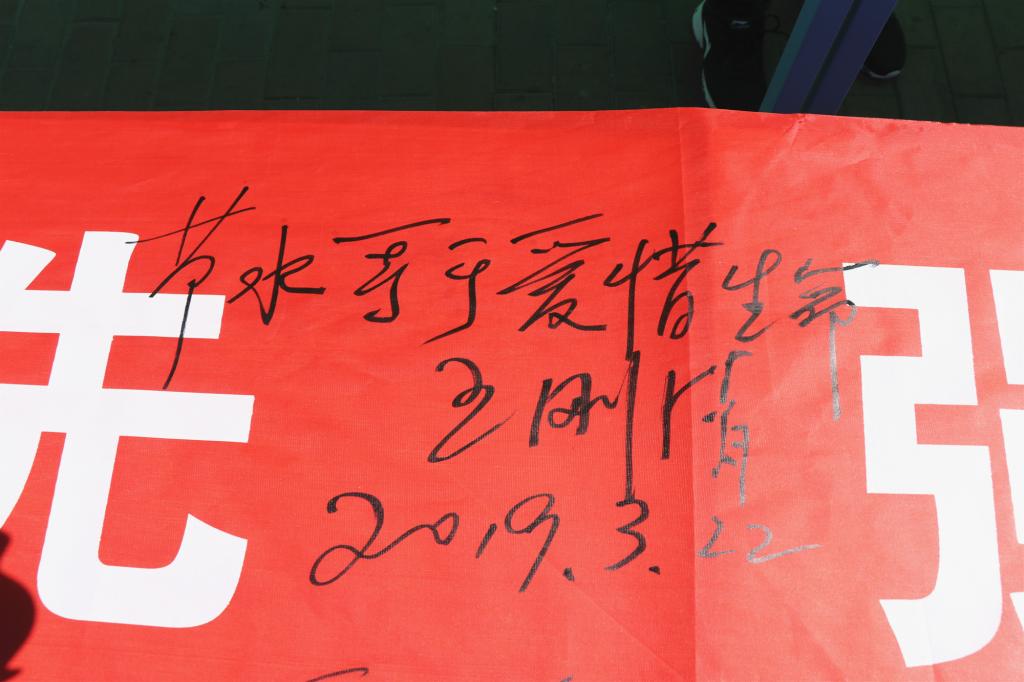 节水等于爱惜生命
王刚
2019.3.22
先
强